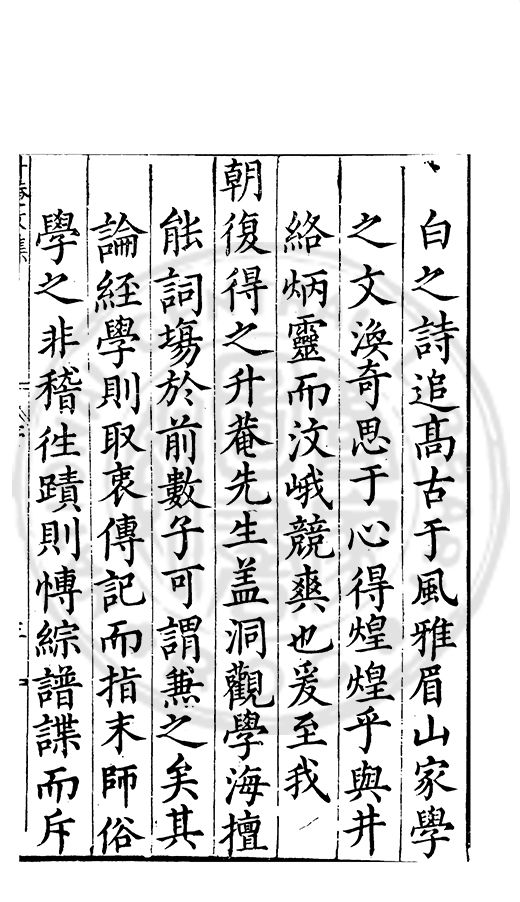 白之詩追髙古于風雅眉山家學
之文渙奇思于心得煌煌乎與井
絡炳靈而汶峨競爽也爰至我
朝復得之升菴先生盖洞觀學海擅
能詞塲於前數子可謂兼之矣其
論經學則取衷傳記而指末師俗
學之非稽徃蹟則慱綜譜諜而斥